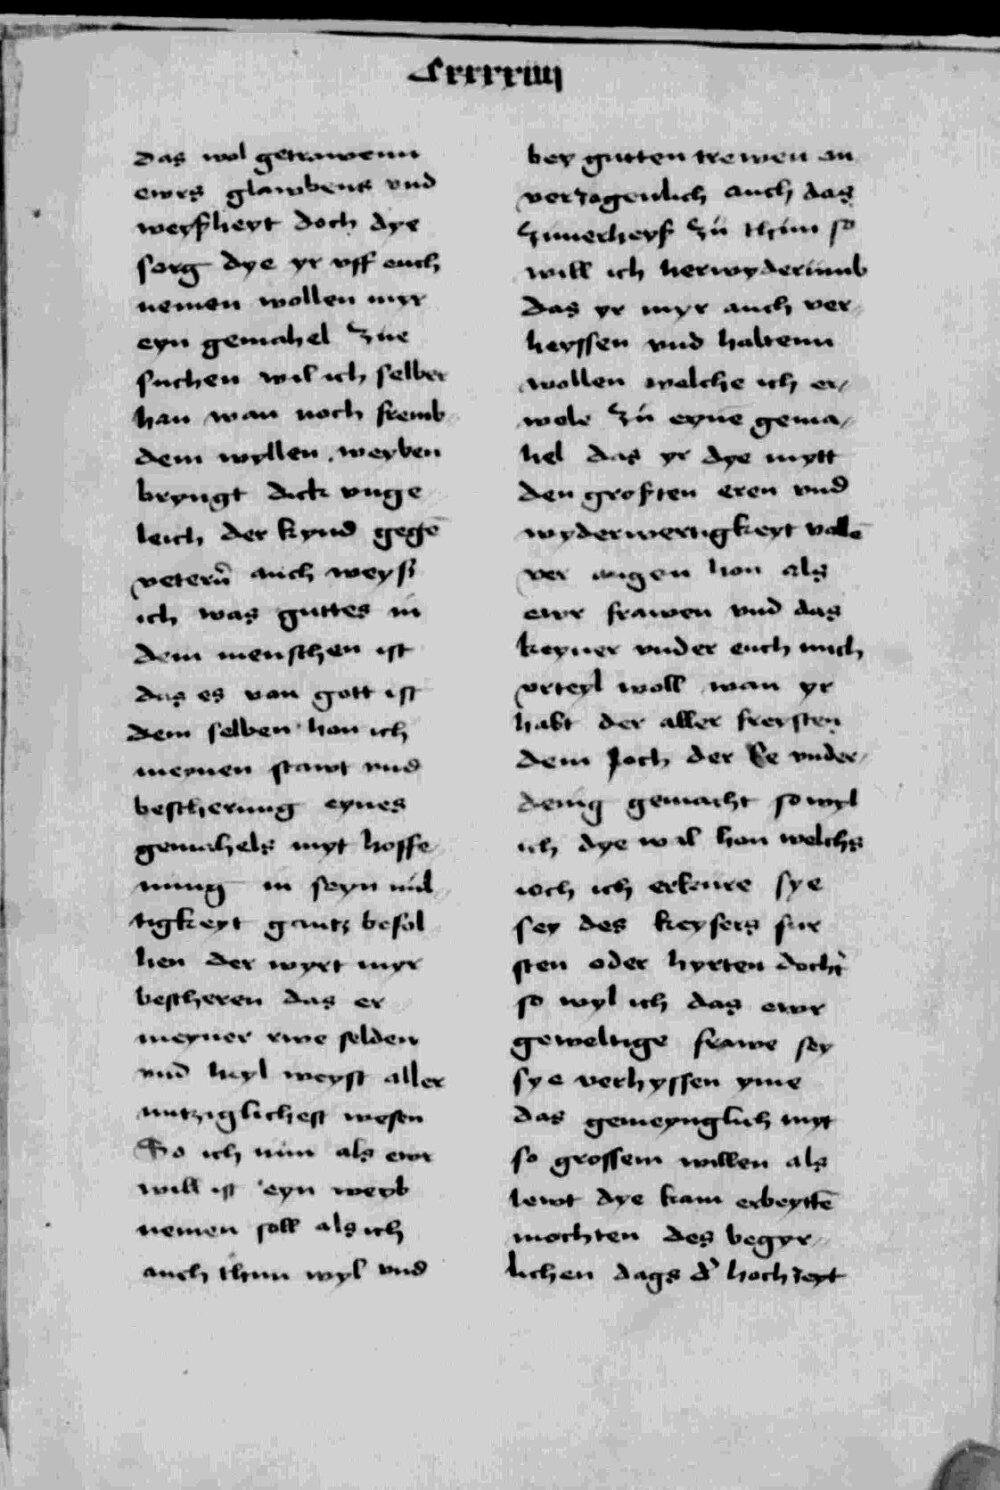 Cxxxxxiiij
das wol getrawenn
ewrs glawbens vnd
weyßheyt doch dye
sorg dye yr vff euch
nemen wollen myr
eyn gemahel zue
suchen wil ich selber
han wan noch fremb
dem wyllen weyben
bryngt dick vnge
leich der kynd gegē
veterñ auch weyß
ich was guttes in
dem menschen ist
das es van gott ist
dem selben han ich
meynen stawt vnd
bescherung eynes
gemahels myt hoffe
nung in seyn mil
tigkeyt gantz befol
hen der wyrt myr
bescheren das er
meyner rwe selden
vnd heyl weyst aller
nutziglichest wesen
So ich nun als ewr
will ist eyn weyb
nemen soll als ich
auch thun wyl vnd
bey gutten trewen an
verzogenlich auch das
zuuerheyß zu thun so
will ich herwyderumb
das yr myr auch ver
heyssen vnd haltenn
wollen welche ich er/
wele zu eynē gema/
hel das yr dye mytt
den großten eren vnd
wyderwertigkeyt vallē
ver augen hon als
ewr frawen vnd das
keyner vnder euch mich
vrteyl woll wan yr
habt der aller freysten
dem Joch der Ee vnder
denig gemacht so wyl
ich dye wal hon welchs
ioch ich erkenre sye
sey des keysers fur
sten oder hyrten docht̄
so wyl ich das ewr
geweltige frawe sey
sye verhyssen yme
das gemeynglich myt
so grossem willen als
lewt dye kam erbeyttē
mochten des begyr
lichen dags d' hochzeyt